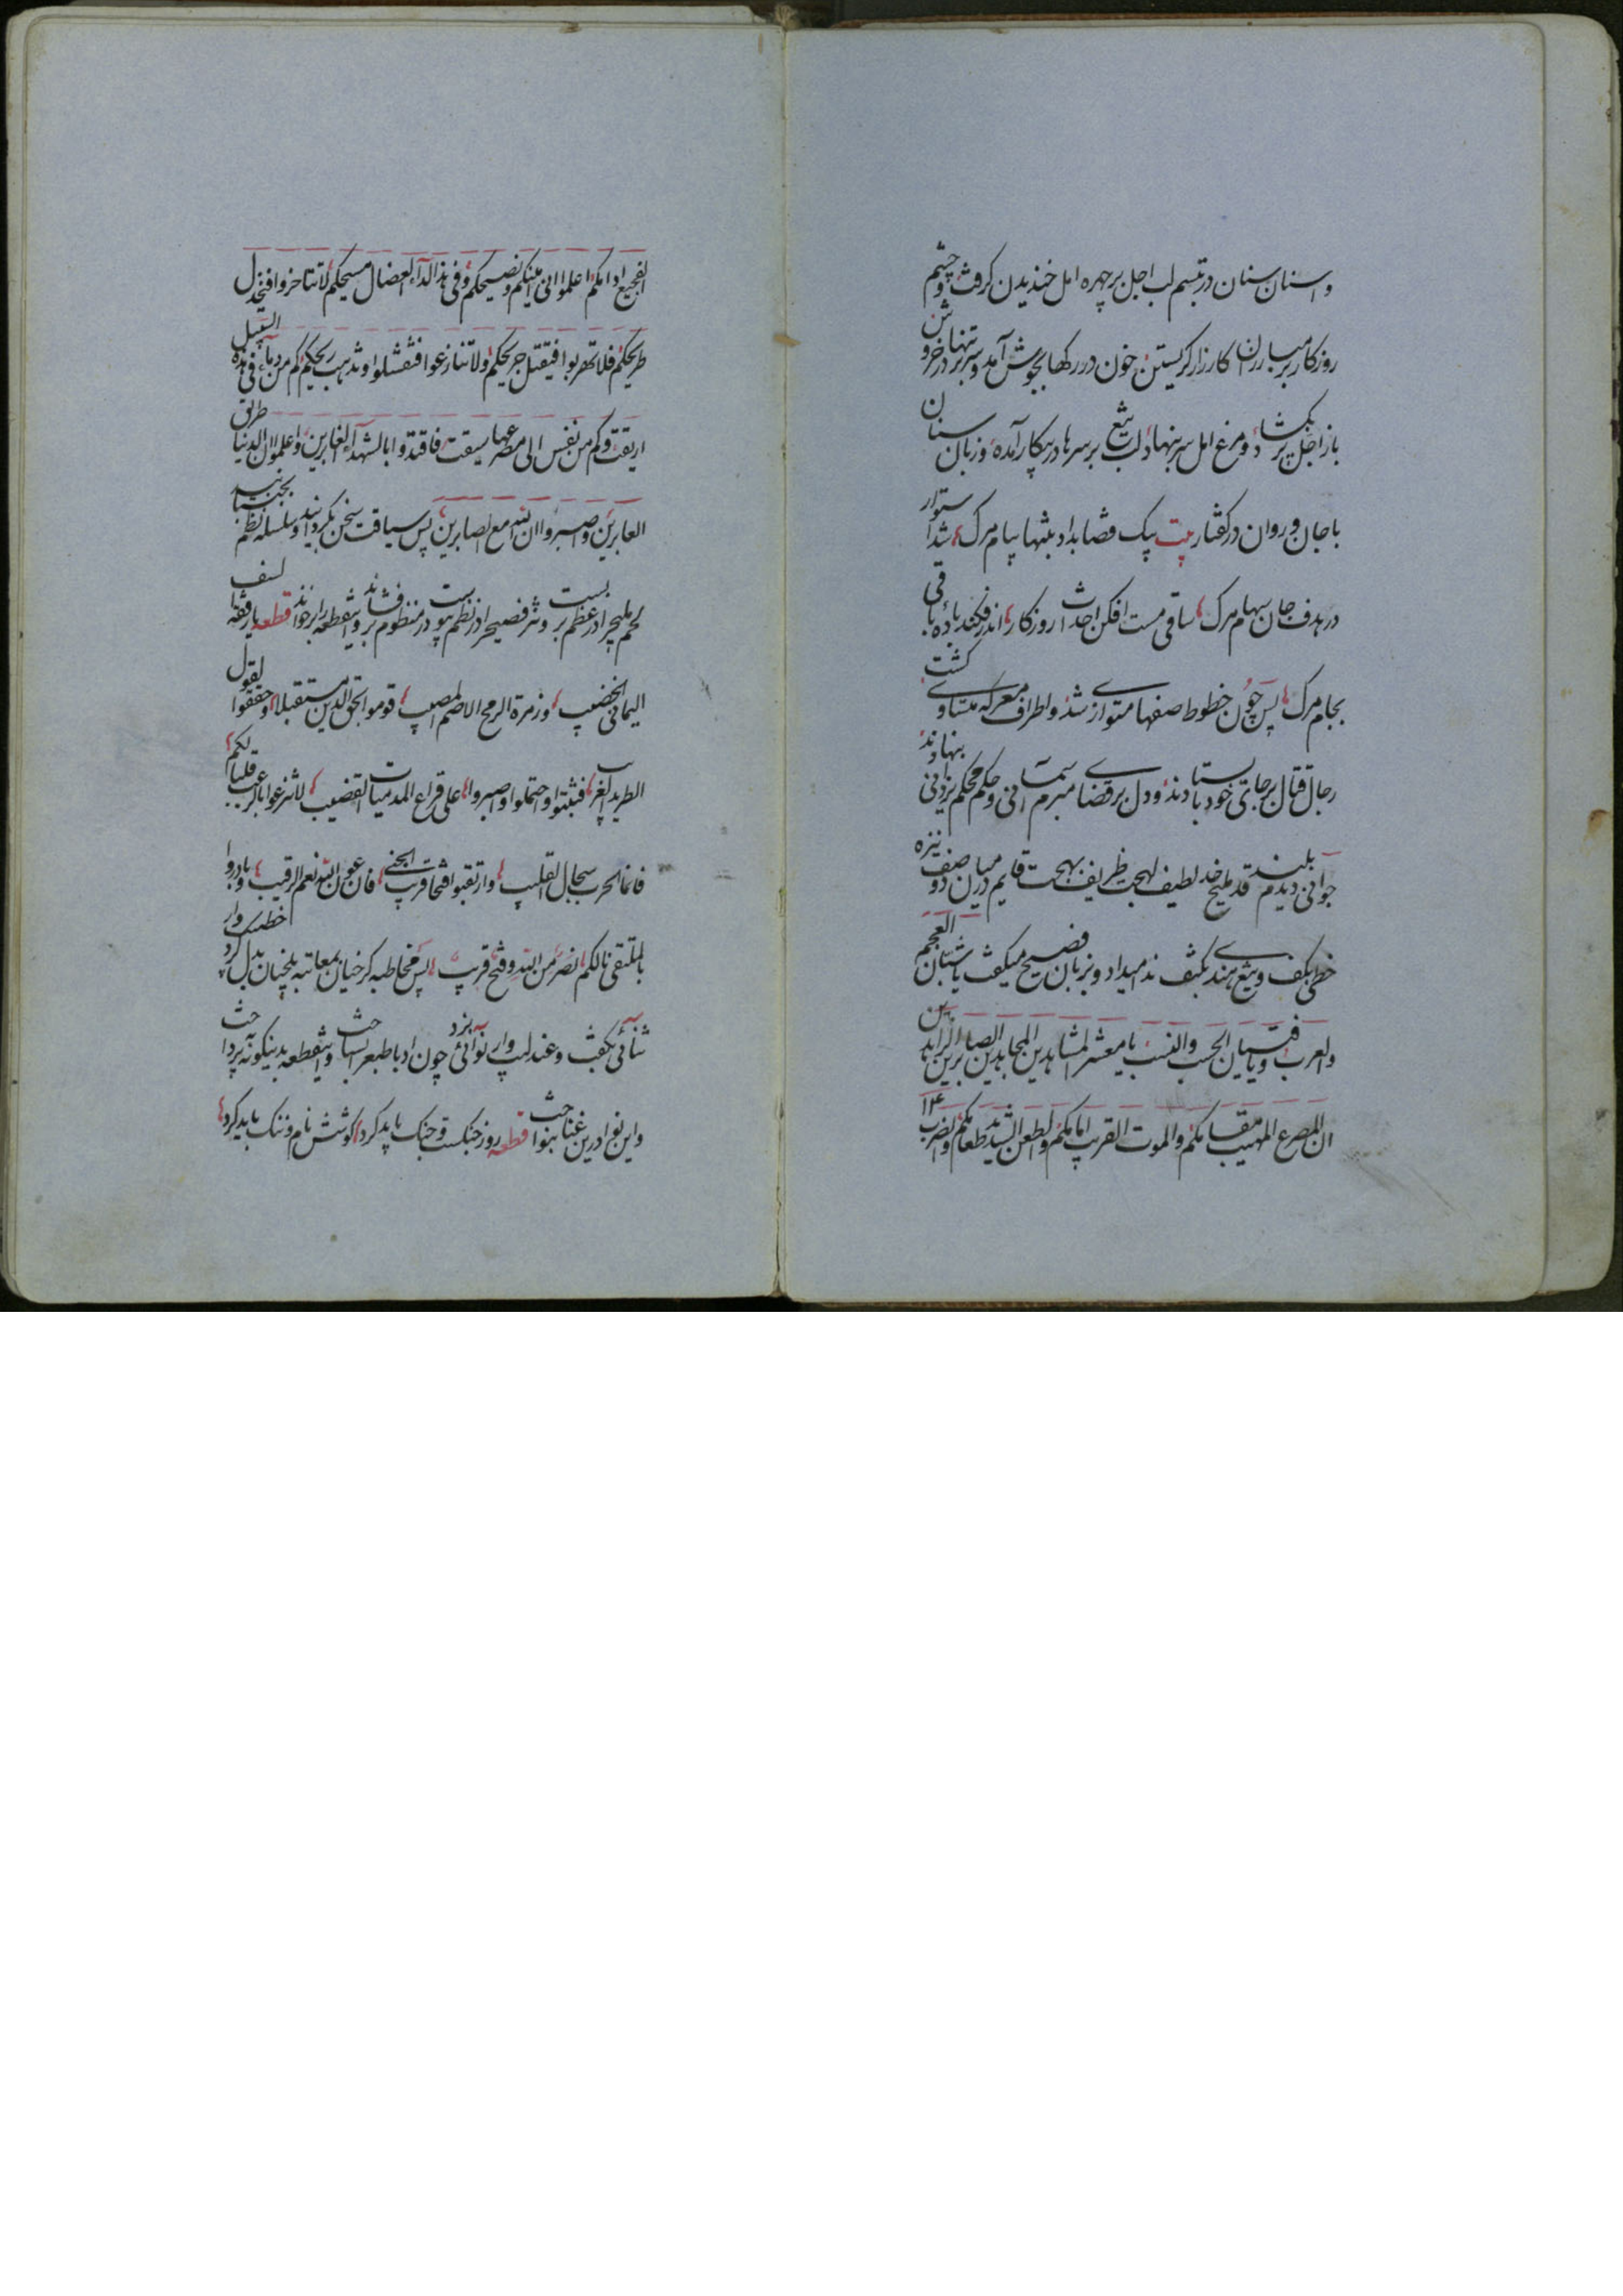 و اسنان سنان در تبسم لب اجل بر چهره امل خندیدن کرفت و چشم
روزکار بر مبارزان کارزار کریستن خون در رکها بجوش آمد و سر بر تنها در خروش
باز اجل پر بکشاد و مرغ امل سر بنهاد لب تیغ بر سرها در پیکار آمده و زبان سنان
با جان و روان در کفتار بیت پیک قضا بداد بتنها پیام مرک شد استوار
در هدف جان سهام مرک ساقی مست افکن احداث روزکار اندر فکند باده باقی
بجام مرک پس چون خطوط صفها متوازی شد و اطراف معرکه متساوی کشت
رجال قتال بر جای خود باستادند و دل بر قضای مبرم آسمانی و حکم محکم یزدانی بنهادند
جوانی دیدم بلند قد ملیح خد لطیف لهجت ظریف بهجت قایم در میان دو صف نیزه
خطی بکف و تیغ هندی بکتف ندا میداد و بزبان فصیح میکفت یا شبان العجم
والعرب و یا فتیان الحسب والنسب یا معشر المشاهدین المجاهدین الصابرین الزایدین
ان المصرع المهیب مقامکم والموت القریب امامکم والطعن الشدید طعامکم والضرب
الفجیع ادامکم اعلموا انی امینکم و نصیحکم وفی هذا الداء العضال مسیحکم لا تتاخروا فیخذل
طریحکم فلا تهربوا فیقتل جریحکم ولا تنازعوا فتفشلوا و تذهب ریحکم کم من دماء فی هذه السبیل
اریقت و کم من نفس الی مصرعها سیقت فاقتدوا بالشهداء الغابرین واعلموا ان الدنیا طریق
العابرین واصبروا ان الله مع الصابرین پس سیاقت سخن بکردانید و سلسله نظم بجنبانید
لحم ملیح را در عظم بست و نثر فصیح را در نظم پیوست در منظوم بر فشاند و این قطعه را بر خواند قطعه یا رفقة السیف
الیمانی الخضیب وزمرة الرمح الاصم الصلیب قوموا لحق الدین مستقبلا وحققوا لقول
الطرید الغریب فثبتوا واحتملوا واصبروا علی قراع المدمیات القضیب لا تنزعوا بالرعب قلبا لکم
فانما الحرب سجال القلیب وارتقبوا فتحا قریب الجنی فان عون الله نعم الرقیب وبادروا
بالملتقی نالکم نصر من الله وفتح قریب پس مخاطبه کرخیان بمعاتبه بلخیان بدل کرد خطیب وار
ثنائی بکفت و عندلیب وار نوائی بزد چون ادبا طبع را بساخت و این قطعه بدینکونه پرداخت
و این نوا درین غنا بنواخت قطعه روز جنکست و جنک باید کرد کوشش نام و ننک باید کرد